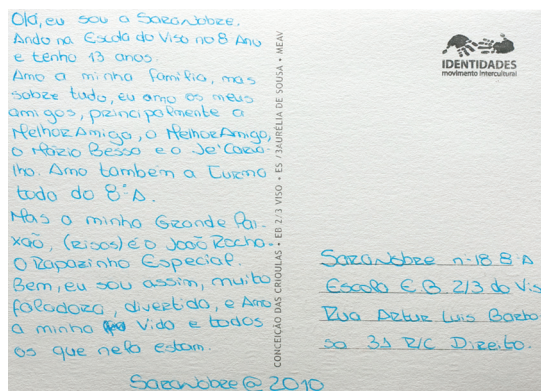 Olá, eu sou a Sara Nobre.
Ando na Escola do Viso no 8 Ano
e tenho 13 anos.
Amo a minha família, mas
sobre tudo, eu amo os meus
amigos, principalmente a
Melhor Amiga, o Melhor Amigo,
o Mário Bessa e o Je' Cario-
lho. Amo também a turma
toda do 8º A.
Mas a minha Grande Pai-
xão, (risos) é o João Rocha.
O Rapazinho Especial.
Bem, eu sou assim, muito
faladora, divertida, e Amo
a minha Vida e todos
os que nela estam.
Sara Nobre @ 2010
CONCEIÇÃO DAS CRIOULAS • EB 2/3 VISO • ES /3AURÉLIA DE SOUSA • MEAV
IDENTIDADES
movimento intercultural
Sara Nobre nº 18 8ºA
Escola E.B 2/3 do Vis
Rua Artur Luis Barbo
sa 31 R/C Direito.